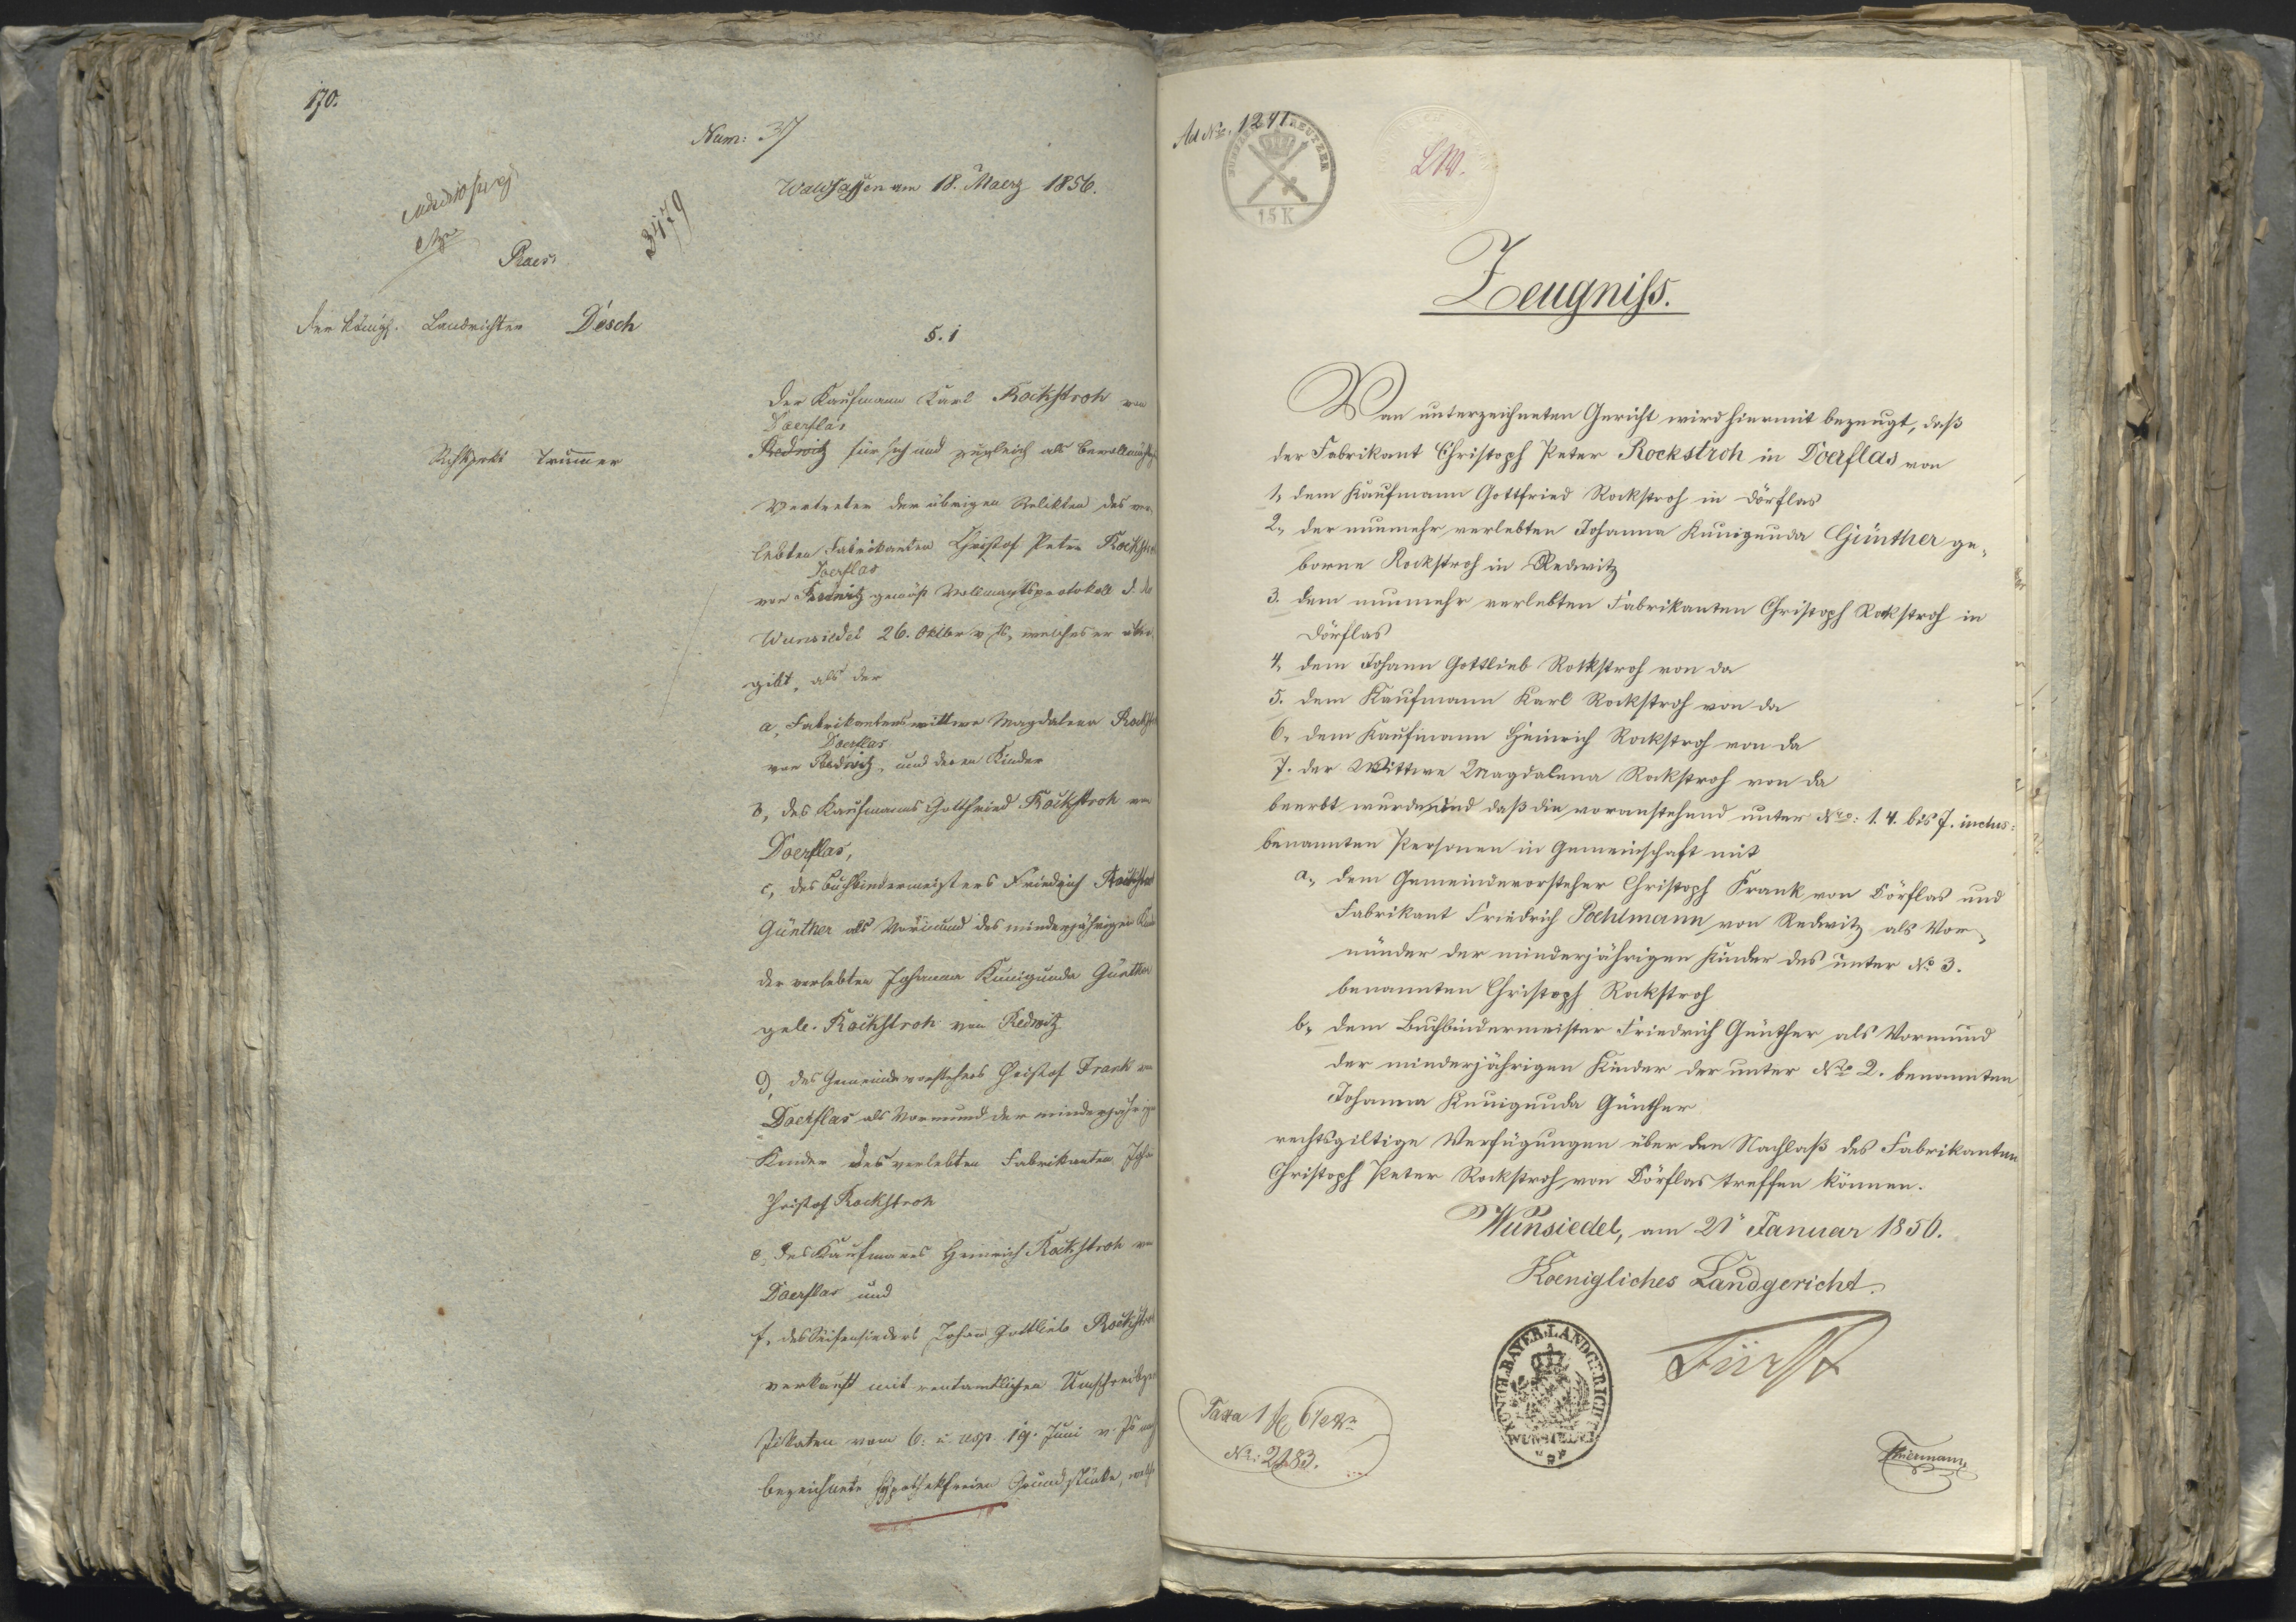 170.
Num: 37
Waldsassen am 18. Maerz 1856.
3479
Praes:
Der königl. Landrichter Desch
§. 1
Der Kaufmann Karl Rockstroh von
Doerflas
Redwitz für sich und zugleich als Bevollmächtig
Vertreter der übrigen Relikten des ver-
lebten Fabrikanten Christof Peter Rockstroh
Doerflas
von Redwitz gemäß Vollmachtsprotokoll d. do
Wunsiedel 26. Oktbr v. Js, welches er über-
gibt, als der
a, Fabrikantenswittwe Magdalena Rockstr
Doerflas
von Redwitz, und deren Kinder
b, des Kaufmanns Gottfried Rockstroh von
Doerflas,
c, des Buchbindermeisters Friedrich Rockstroh
Günther als Vormund des minderjährigen Kind
der verlebten Johanna Kunigunda Günther
geb. Rockstroh von Redwitz
d, des Gemeindevorstehers Christof Frank von
Doerflas als Vormund der minderjährigen
Kinder des verlebten Fabrikanten Joha
Christof Rockstroh
e, des Kaufmanns Heinrich Rockstroh von
Doerflas und
f, des Seifensieders Johann Gottlieb Rockstroh
verkauft mit rentamtlichen Umschreibzer
tifikaten vom 6. u resp. 19. Juni v. Js
bezeichnete hypothekfreien Grundstücke, welche
Ad Nr. 1241.
FUNFZEHN KREUTZER
15 K
Zeugniss.
Von unterzeichneten Gericht wird hiermit bezeugt, daß
der Fabrikant Christoph Peter Rockstroh in Doerflas von
1, dem Kaufmann Gottfried Rockstroh in Dörflas
2, der nunmehr verlebten Johanna Kunigunda Günther ge-
borne Rockstroh in Redwitz
3. dem nunmehr verlebten Fabrikanten Christoph Rockstroh in
Dörflas
4, dem Johann Gottlieb Rockstroh von da
5. dem Kaufmann Karl Rockstroh von da
6, dem Kaufmann Heinrich Rockstroh von da
7. der Wittwe Magdalena Rockstroh von da
beerbt wurde, und daß die voranstehend unter Nro: 1. 4. bis 7. inclus:
benannten Personen in Gemeinschaft mit
a, dem Gemeindevorsteher Christoph Frank von Dörflas und
Fabrikant Friedrich Pöhlmann von Redwitz als Vor-
münder der minderjährigen Kinder des unter No 3.
benannten Christoph Rockstroh
b, dem Buchbindermeister Friedrich Günther als Vormund
der minderjährigen Kinder der unter Nro 2. benannten
Johanna Kunigunda Günther
rechtsgiltige Verfügungen über den Nachlaß des Fabrikanten
Christoph Peter Rockstroh von Dörflas treffen können.
Wunsiedel, am 21 Januar 1856.
Koenigliches Landgericht.
KÖNIGL. BAYER. LANDGERICHT
WUNSIEDEL
Fürst
Taxa 1 f
Nr: 2183.